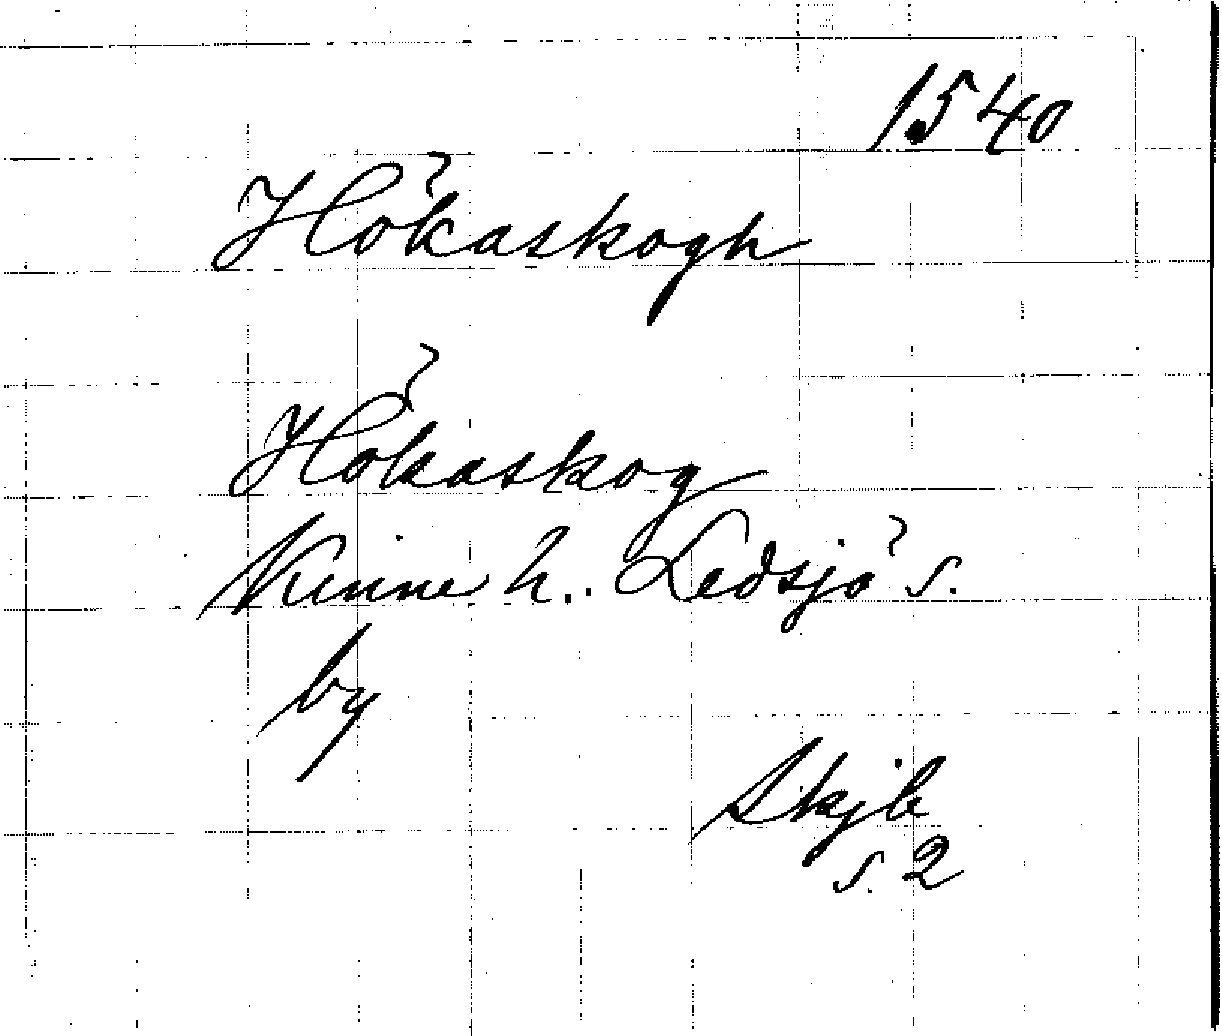 1540
Hökaskogh
Hökaskog
Kinne h.. Ledsjö s.
by
Skjb
s. 2